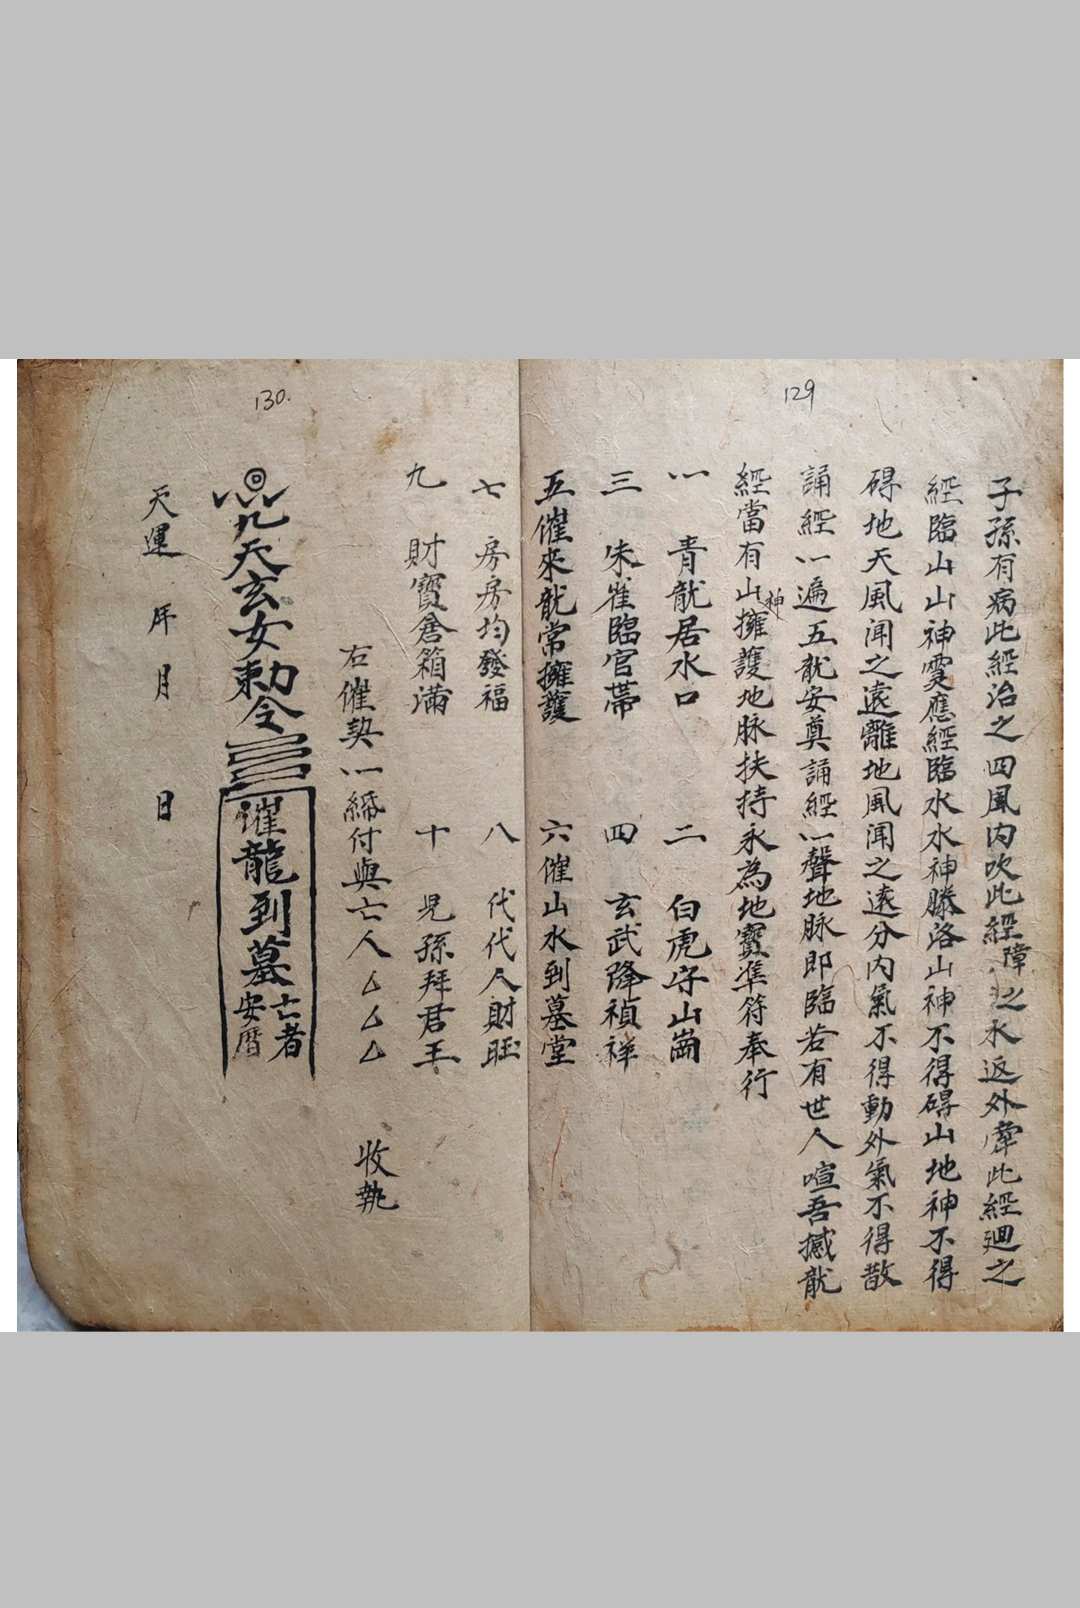 129
子孫有病此經治之四風内吹此經障之水返外𩂢此經廻之
經臨山山神霊應經臨水水神滕洛山神不得碍山地神不得
碍地天風闻之遠離地風闻之遠分内氣不得動外氣不得散
誦經一遍五龍安奠誦經一聲地脉即臨若有世人喧吾撼龍
經當有山神擁護地脉扶持永為地寳準符奉行
一 青龍居水口 二 白虎守山崗
三 朱雀臨官帯 四 玄武降禎祥
五催來龍常擁護 六催山水到墓堂
130.
七 房房均發福 八 代代人財旺
九 財寳倉箱滿 十 児孫拜君王
右催契一締付與亡人厶厶厶 收執
九天玄女勅令 催龍到墓 亡者安厝
天運 年 月 日